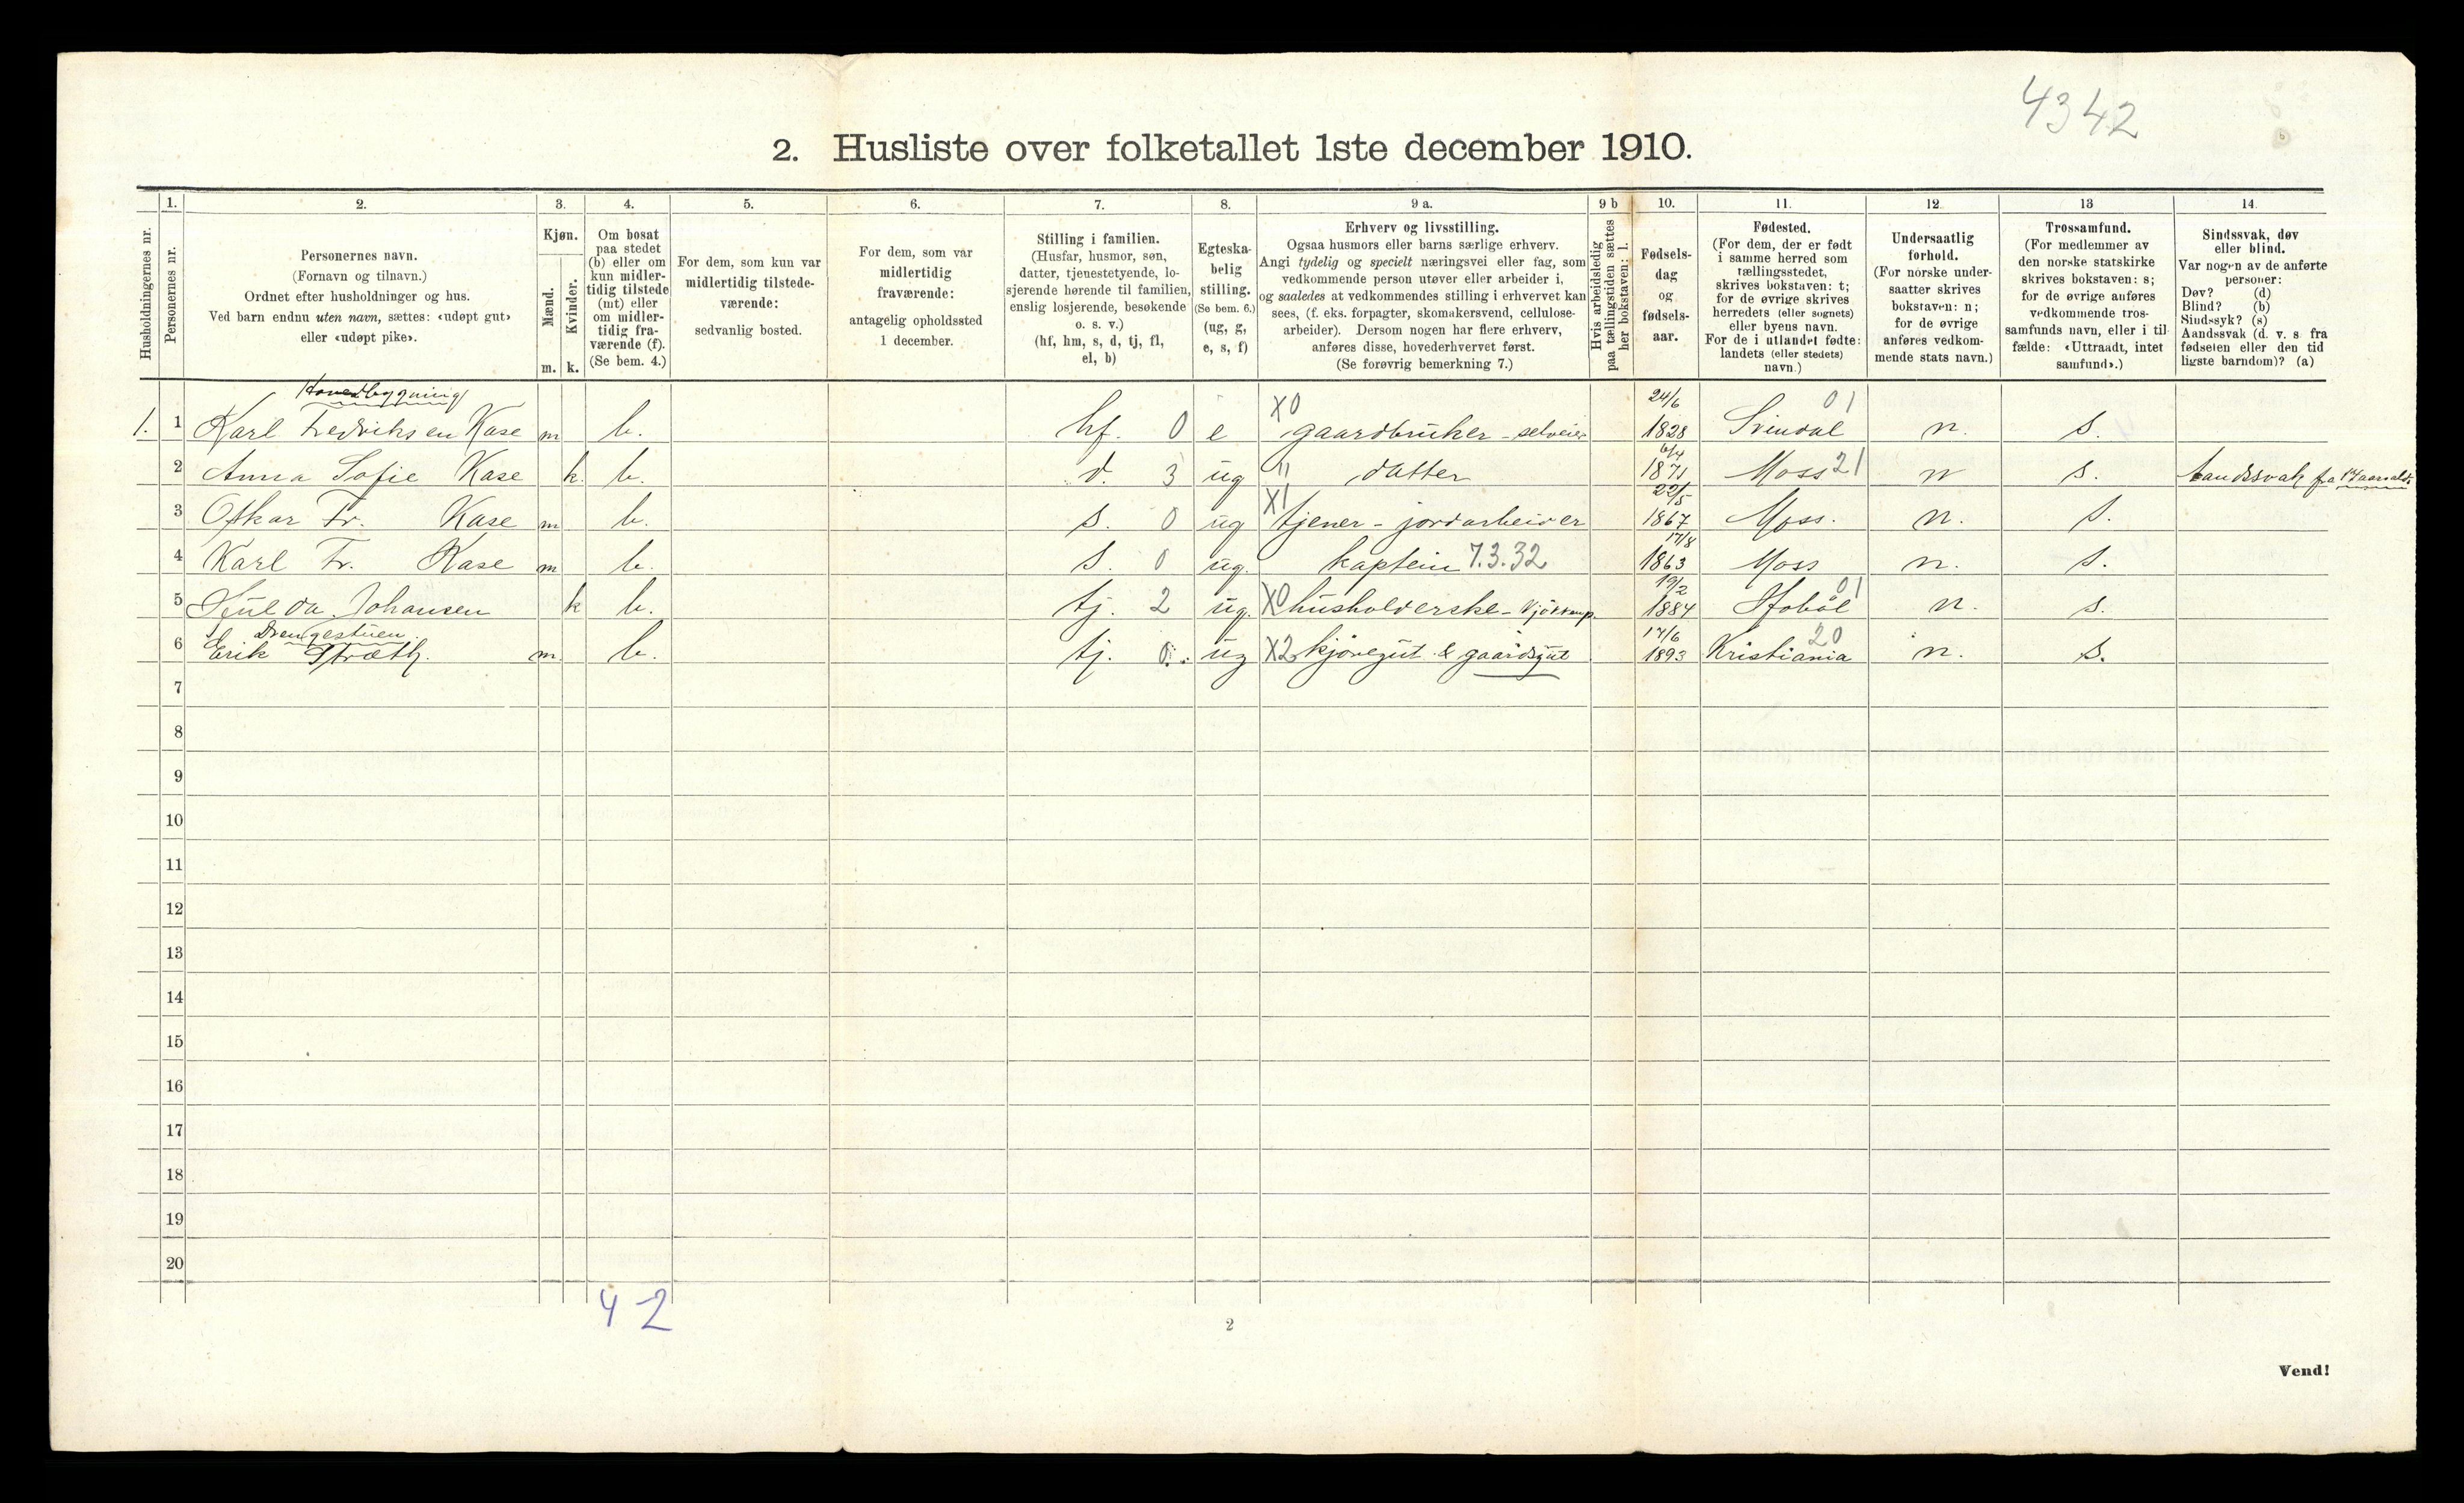 4342
2. Husliste over folketallet 1ste december 1910.
Husholdningernes nr.
1.
Personernes nr.
2.
Personernes navn.
(Fornavn og tilnavn.)
Ordnet efter husholdninger og hus.
Ved barn endnu uten navn, sættes: «udøpt gut»
eller «udøpt pike».
3.
Kjøn.
Mænd.
Kvinder.
m. k.
4.
Om bosat
paa stedet
(b) eller om
kun midler-
tidig tilstede
(mt) eller
om midler-
tidig fra-
værende (f).
(Se bem. 4.)
5.
For dem, som kun var
midlertidig tilstede-
værende:
sedvanlig bosted.
6.
For dem, som var
midlertidig
fraværende:
antagelig opholdssted
1 december.
7.
Stilling i familien.
(Husfar, husmor, søn,
datter, tjenestetyende, lo-
sjerende hørende til familien,
enslig losjerende, besøkende
o. s. v.)
(hf, hm, s, d, tj, fl,
el, b)
8.
Egteska-
belig
stilling.
(Se bem. 6.)
(ug, g,
e, s, f)
9 a.
Erhverv og livsstilling.
Ogsaa husmors eller barns særlige erhverv.
Angi tydelig og specielt næringsvei eller fag, som
vedkommende person utøver eller arbeider i,
og saaledes at vedkommendes stilling i erhvervet kan
sees, (f. eks. forpagter, skomakersvend, cellulose-
arbeider). Dersom nogen har flere erhverv,
anføres disse, hovederhvervet først.
(Se forøvrig bemerkning 7.)
9 b
Hvis arbeidsledig
paa tællingstiden sættes
her bokstaven: l.
10.
Fødsels-
dag
og
fødsels-
aar.
11.
Fødested.
(For dem, der er født
i samme herred som
tællingsstedet,
skrives bokstaven: t;
for de øvrige skrives
herredets (eller sognets)
eller byens navn.
For de i utlandet fødte:
landets (eller stedets)
navn.)
12.
Undersaatlig
forhold.
(For norske under-
saatter skrives
bokstaven: n;
for de øvrige
anføres vedkom-
mende stats navn.)
13
Trossamfund.
(For medlemmer av
den norske statskirke
skrives bokstaven: s;
for de øvrige anføres
vedkommende tros-
samfunds navn, eller i til-
fælde: «Uttraadt, intet
samfund».)
14.
Sindssvak, døv
eller blind.
Var nogen av de anførte
personer:
Døv? (d)
Blind? (b)
Sindssyk? (s)
Aandssvak (d. v. s. fra
fødselen eller den tid
ligste barndom)? (a)
Hovedbygning
1. 1 Karl Fredriksen Kase m b. hf. 0 e X0 gaardbruker - selveier 24/6 1828 Svindal 01 n. s.
2 Anna Sofie Kase k. b. d. 3 ug " datter 6/4 1871 Moss 21 n s. Aandssvak fra
3 Oskar Fr. Kase m b. s. 0 ug X1 tjener - jordarbeider 22/5 1867 Moss. n. s.
4 Karl Fr. Kase m b. s. 0 ug. kaptein 7.3.32 17/8 1863 Moss n. s.
5 Hulda Johansen k b. tj. 2 ug. X0 husholderske - 19/2 1884 Hobøl 01 n. s.
Drengestuen
6 Erik Stræth. m. b. tj. 0 ug X2 kjøregut & gaardsgut 17/6 1893 Kristiania 20 n. s.
7
8
9
10
11
12
13
14
15
16
17
18
19
20
42
2
Vend!